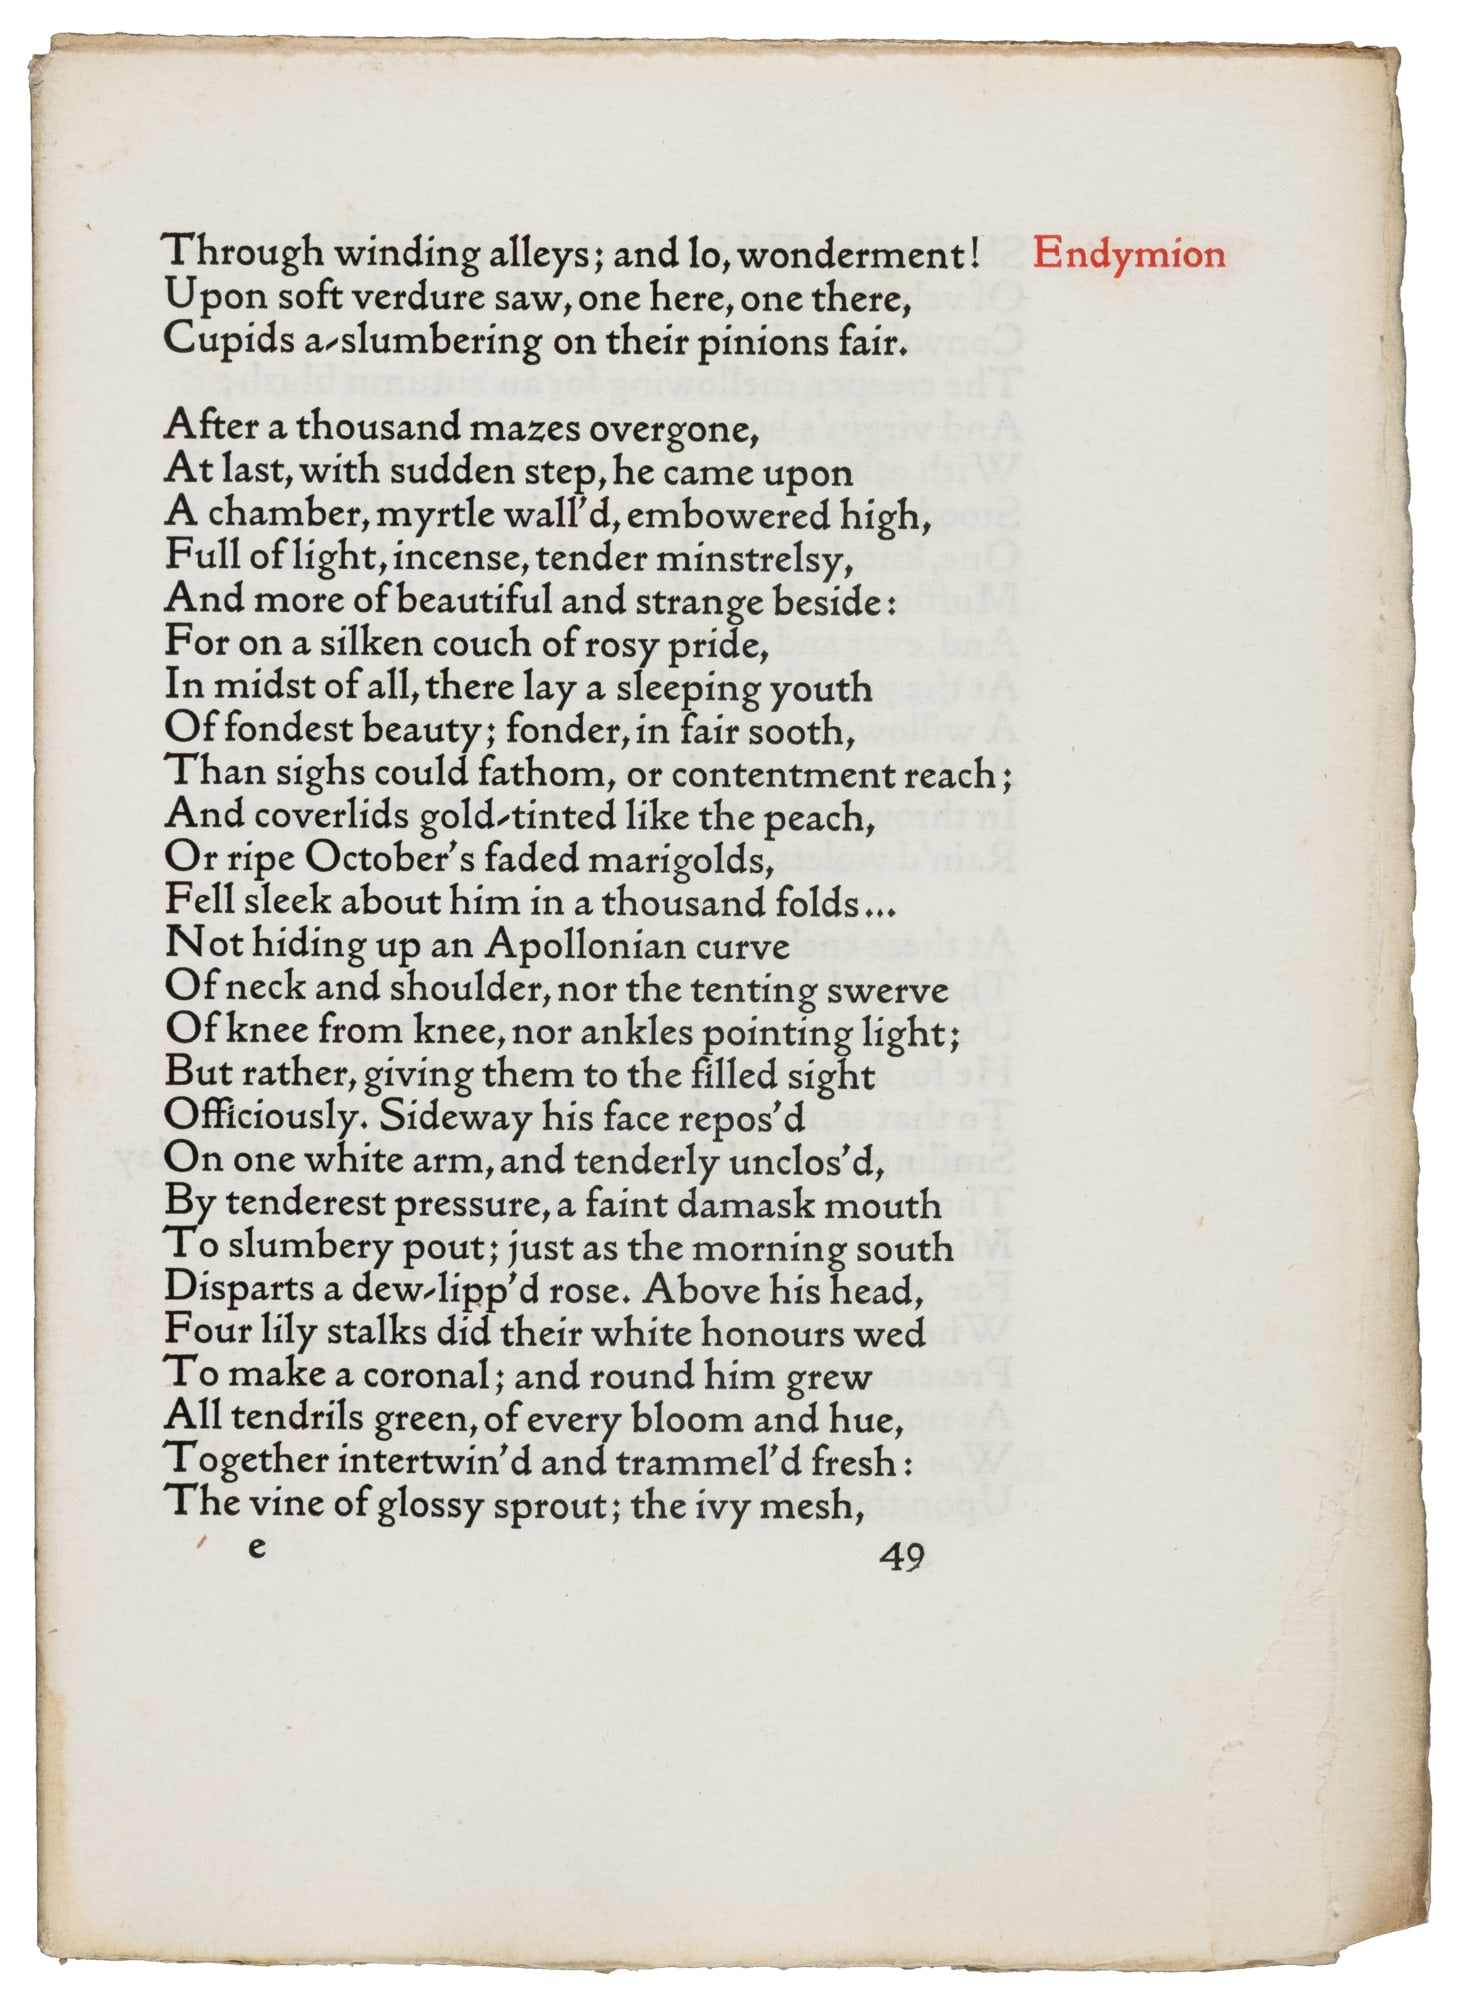 Through winding alleys; and lo, wonderment! Endymion
Upon soft verdure saw, one here, one there,
Cupids a-slumbering on their pinions fair.
After a thousand mazes overgone,
At last, with sudden step, he came upon
A chamber, myrtle wall'd, embowered high,
Full of light, incense, tender minstrelsy,
And more of beautiful and strange beside:
For on a silken couch of rosy pride,
In midst of all, there lay a sleeping youth
Of fondest beauty; fonder, in fair sooth,
Than sighs could fathom, or contentment reach;
And coverlids gold-tinted like the peach,
Or ripe October's faded marigolds,
Fell sleek about him in a thousand folds...
Not hiding up an Apollonian curve
Of neck and shoulder, nor the tenting swerve
Of knee from knee, nor ankles pointing light;
But rather, giving them to the filled sight
Officiously. Sideway his face repos'd
On one white arm, and tenderly unclos'd,
By tenderest pressure, a faint damask mouth
To slumbery pout; just as the morning south
Disparts a dew-lipp'd rose. Above his head,
Four lily stalks did their white honours wed
To make a coronal; and round him grew
All tendrils green, of every bloom and hue,
Together intertwin'd and trammel'd fresh:
The vine of glossy sprout; the ivy mesh,
e 49